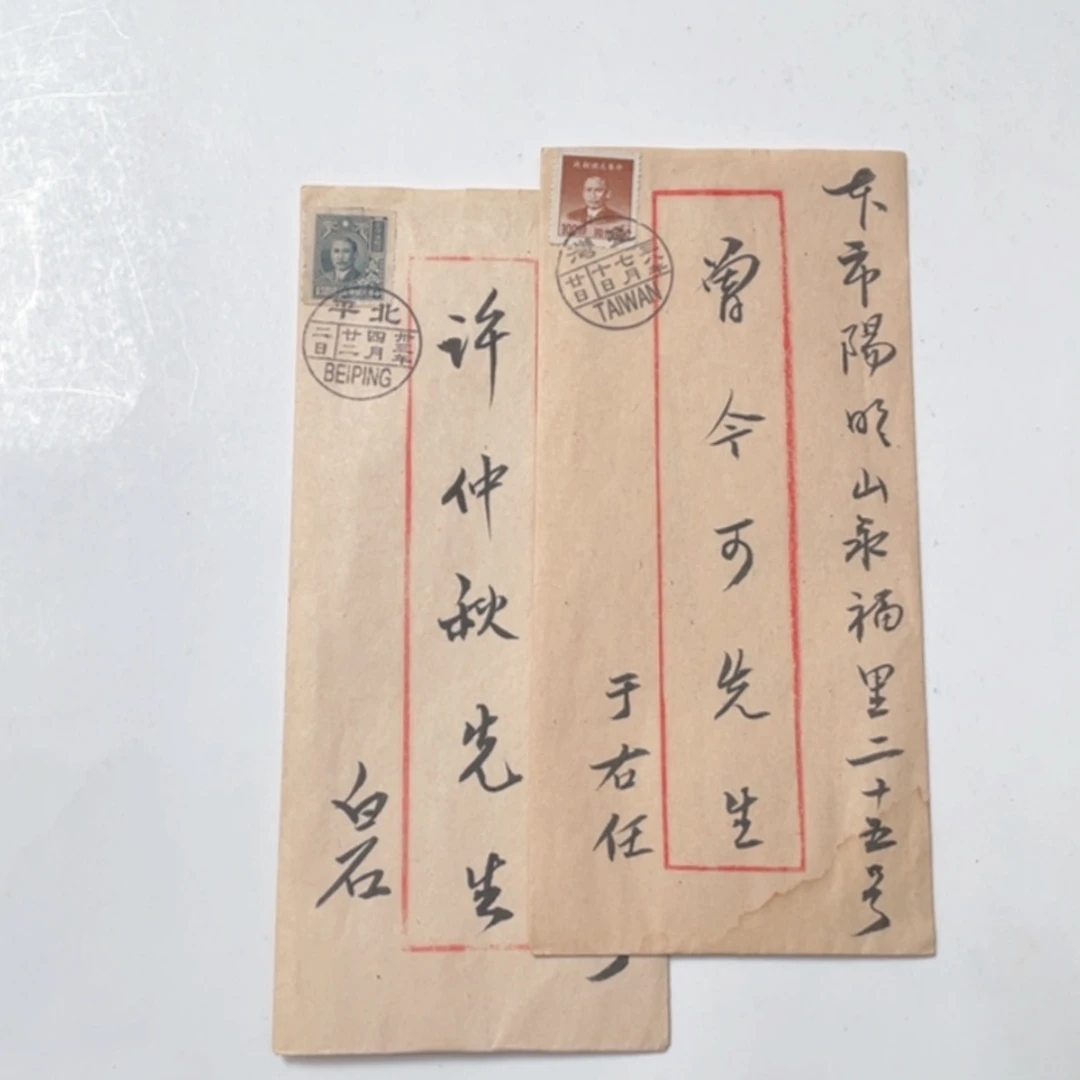 本市陽明山永福里二十五号
曾今可先生
于右任
臺灣
卅八年
七月
廿日
十日
TAIWAN
100
許仲秋先生
白石
北平
卅三年
四月
廿二
二日
BEiPiNG